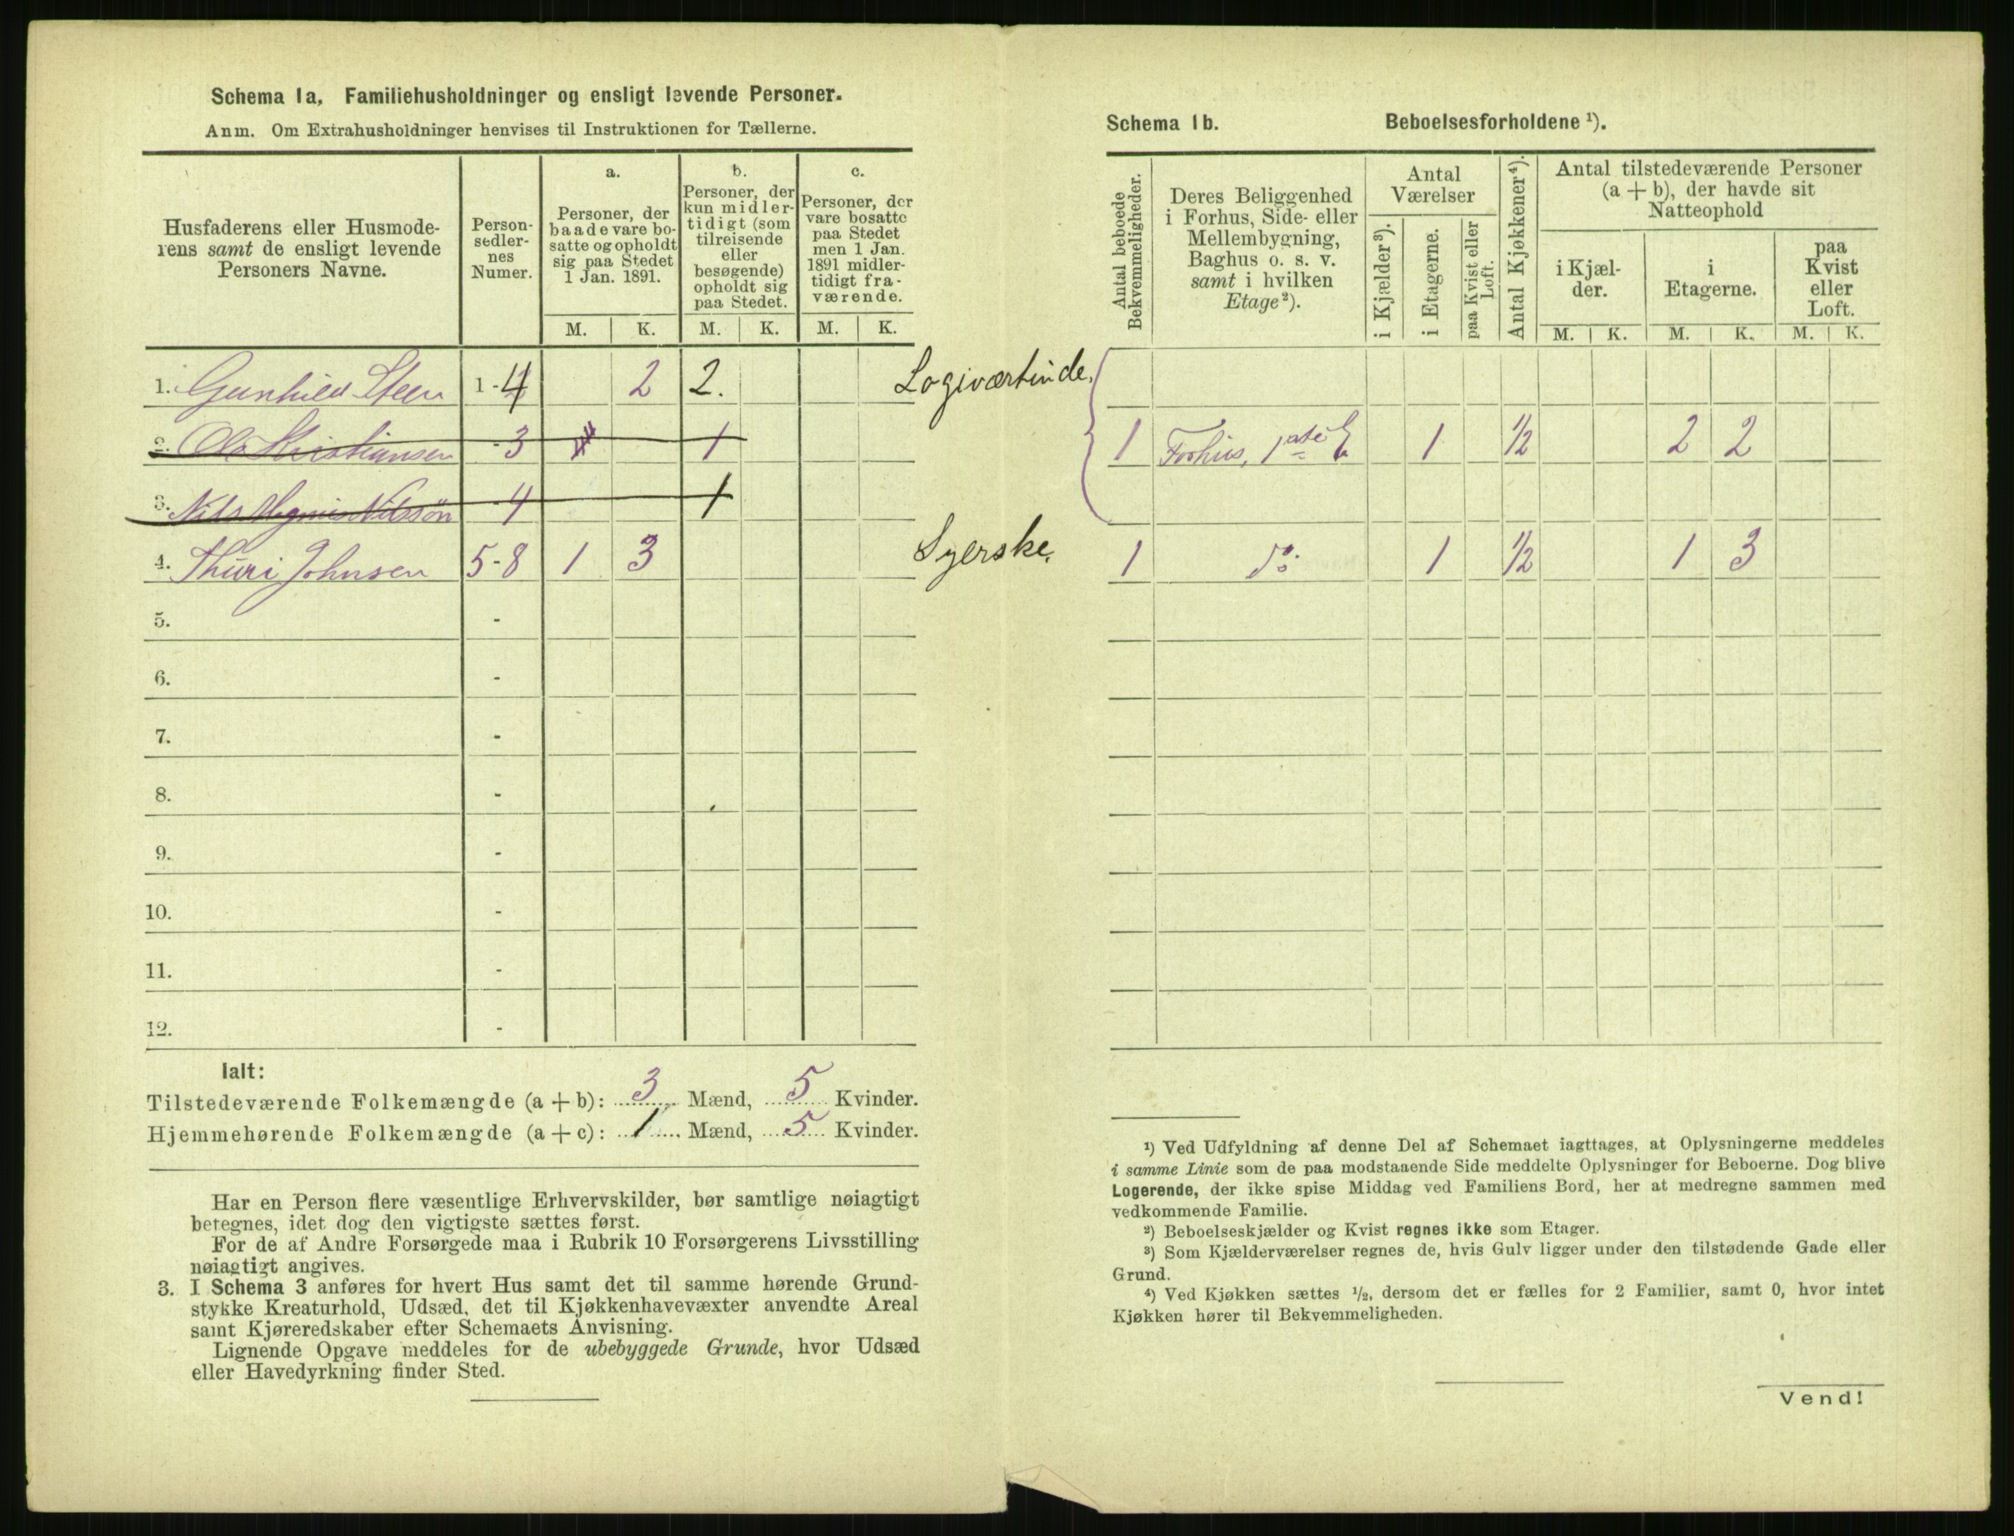 Schema 1a, Familiehusholdninger og ensligt levende Personer.
Anm. Om Extrahusholdninger henvises til Instruktionen for Tællerne.
Husfaderens eller Husmode-
rens samt de ensligt levende
Personers Navne.
Person-
sedler-
nes
Numer.
a.
Personer, der
baade vare bo-
satte og opholdt
sig paa Stedet
1 Jan. 1891.
b.
Personer, der
kun midler-
tidigt (som
tilreisende
eller
besøgende)
opholdt sig
paa Stedet.
c.
Personer, der
vare bosatte
paa Stedet
men 1 Jan.
1891 midler-
tidigt fra-
værende.
M. K. M. K. M. K.
1. Gunhild Steen 1-4 2 2. Logiværtinde.
2. Ole Kristiansen -3 1
3. Nils Magnus Nilssön -4 1
4. Thuri Johnsen 5-8 1 3 Syerske.
5. -
6. -
7. -
8. -
9. -
10. -
11. -
12. -
Ialt:
Tilstedeværende Folkemængde (a + b): 3 Mænd, 5 Kvinder.
Hjemmehørende Folkemængde (a + c): 1 Mænd, 5 Kvinder.
Har en Person flere væsentlige Erhvervskilder, bør samtlige nøiagtigt
betegnes, idet dog den vigtigste sættes først.
For de af Andre Forsørgede maa i Rubrik 10 Forsørgerens Livsstilling
nøiagtigt angives.
3. I Schema 3 anføres for hvert Hus samt det til samme hørende Grund-
stykke Kreaturhold, Udsæd, det til Kjøkkenhavevæxter anvendte Areal
samt Kjøreredskaber efter Schemaets Anvisning.
Lignende Opgave meddeles for de ubebyggede Grunde, hvor Udsæd
eller Havedyrkning finder Sted.
Schema 1b. Beboelsesforholdene ¹).
Antal beboede
Bekvemmeligheder.
Deres Beliggenhed
i Forhus, Side- eller
Mellembygning,
Baghus o. s. v.
samt i hvilken
Etage ²).
Antal
Værelser
i Kjælder ³).
i Etagerne.
paa Kvist eller
Loft.
Antal Kjøkkener ⁴).
Antal tilstedeværende Personer
(a + b), der havde sit
Natteophold
i Kjæl-
der.
i
Etagerne.
paa
Kvist
eller
Loft.
M. K. M. K. M. K.
1 Forhus, 1ste E 1 ½ 2 2
1 do 1 ½ 1 3
¹) Ved Udfyldning af denne Del af Schemaet iagttages, at Oplysningerne meddeles
i samme Linie som de paa modstaaende Side meddelte Oplysninger for Beboerne. Dog blive
Logerende, der ikke spise Middag ved Familiens Bord, her at medregne sammen med
vedkommende Familie.
²) Beboelseskjælder og Kvist regnes ikke som Etager.
³) Som Kjælderværelser regnes de, hvis Gulv ligger under den tilstødende Gade eller
Grund.
⁴) Ved Kjøkken sættes ½, dersom det er fælles for 2 Familier, samt 0, hvor intet
Kjøkken hører til Bekvemmeligheden.
Vend!